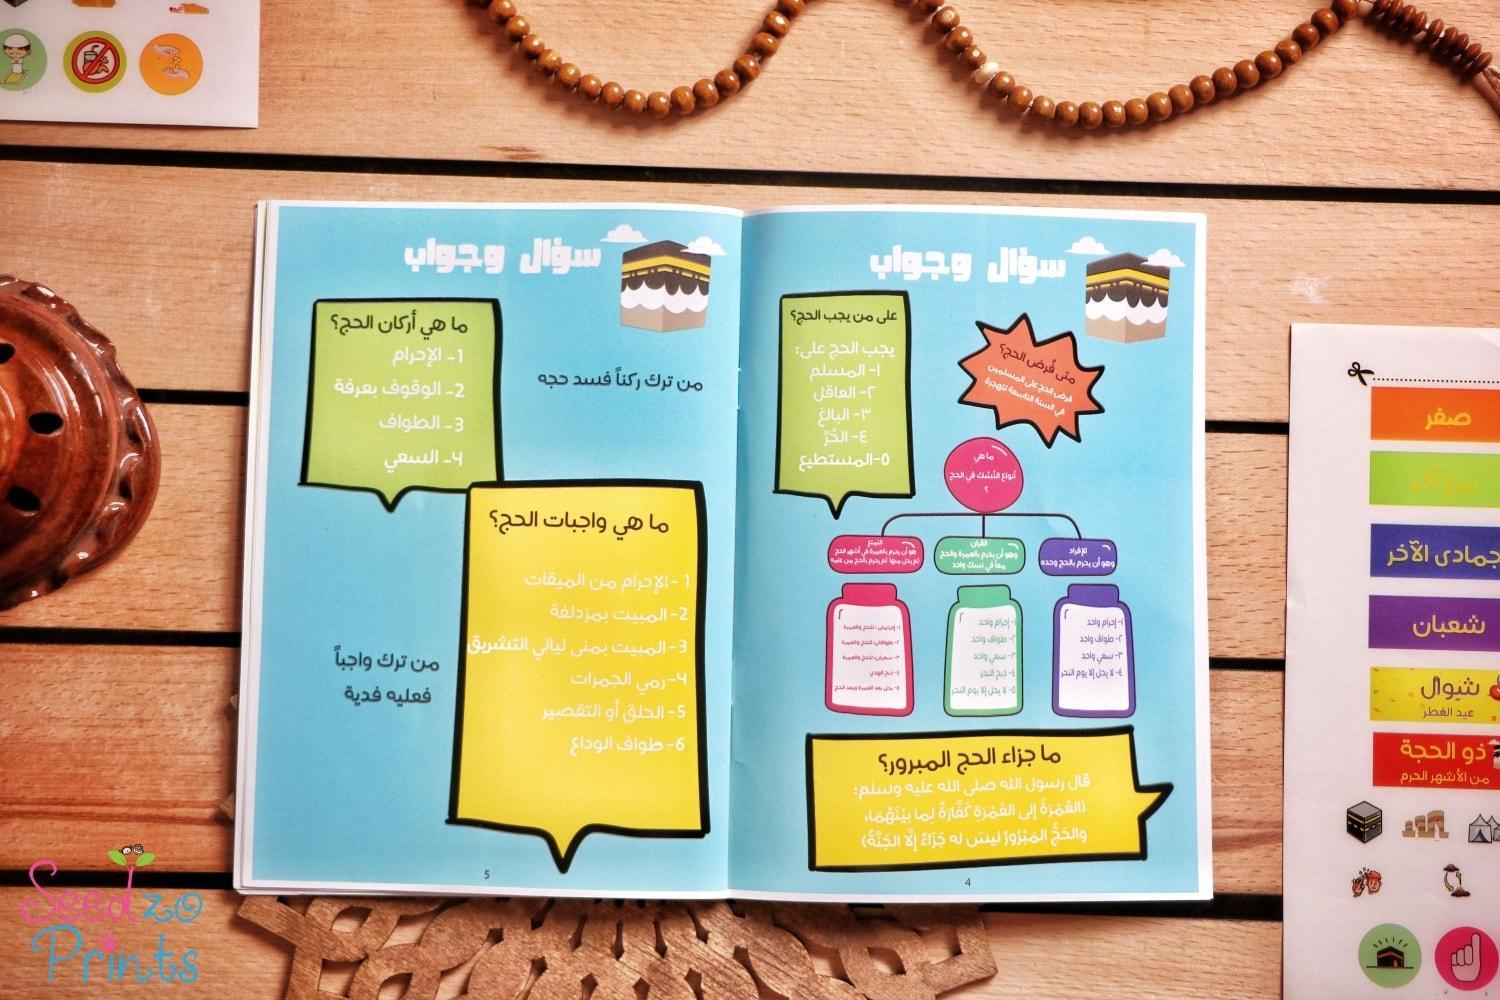 سؤال وجواب
متى فُرض الحج؟
فرض الحج على المسلمين
في السنة التاسعة للهجرة
على من يجب الحج؟
يجب الحج على:
١- المسلم
٢- العاقل
٣- البالغ
٤- الحُرّ
٥-المستطيع
ما هي
أنواع النُسُك في الحج
؟
الإفراد
وهو أن يحرم بالحج وحده
القران
وهو أن يحرم بالعمرة والحج
معاً في نسك واحد
التمتع
هو أن يحرم بالعمرة في أشهر الحج
ثم يحل منها ثم يحرم بالحج من عامه
١- إحرام واحد
٢- طواف واحد
٣- سعي واحد
٤- لا يحل إلا يوم النحر
١- إحرام واحد
٢- طواف واحد
٣- سعي واحد
٤- ذبح النحر
٥- لا يحل إلا يوم النحر
١- إحرامان : للحج والعمرة
٢- طوافان: للحج والعمرة
٣- سعيان: للحج والعمرة
٤- ذبح الهدي
٥- يحل بعد العمرة وبعد الحج
ما جزاء الحج المبرور؟
قال رسول الله صلى الله عليه وسلم:
(العُمْرَةُ إلى العُمْرَةِ كَفَّارَةٌ لِما بيْنَهُمَا،
والحَجُّ المَبْرُورُ ليسَ له جَزَاءٌ إلَّا الجَنَّةُ)
4
سؤال وجواب
ما هي أركان الحج؟
1- الإحرام
2- الوقوف بعرفة
3- الطواف
4- السعي
من ترك ركناً فسد حجه
ما هي واجبات الحج؟
1 -الإحرام من الميقات
2- المبيت بمزدلفة
3- المبيت بمنى ليالي التشريق
4- رمي الجمرات
5- الحلق أو التقصير
6- طواف الوداع
من ترك واجباً
فعليه فدية
5
صفر
ربيع آخر
جمادى الآخر
شعبان
شوال
عيد الفطر
ذو الحجة
من الأشهر الحرم
Seedzo
Prints